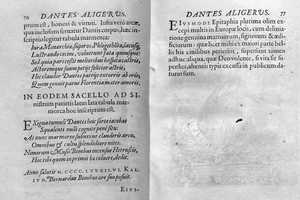 76 DANTES ALIGERVS.
pronest, honos & virtus. Iussu verò arcæ
qua inclusum fuerat Dantis corpus, hæc in-
scripsit legitur tabula marmorea:
Iura Monarchiæ, Superos, Phlegethonta, lacusq́;
Lustrando cecini, voluerunt fata quousq́;:
Sed quia pars cessit melioribus hospita castris
Actoremq́; suum petijt felicior astris,
Hic claudor Dantes patrijs extorris ab oris,
Quem genuit parvi Florentia mater amoris.
IN EODEM SACELLO AD SI-
nistrum parietis latus lata tabula mar-
morea hoc inscriptum est.
Exigua tumuli Dantes hic sorte iacebas
Squalenti nulli cognite penè situ:
At nunc marmoreo subnixus conderis arcu,
Omnibus & cultu splendidiore nites.
Nimirum Musis Bembus incensus Hetruscis,
Hoc tibi quem in primis hæ coluere, dedit.
Anno salutis M. CCCC. LXXXIII. VI. KAL.
IVN. Bernardus Bembus ære suo posuit.
EIVS-
DANTES ALIGERVS. 77
EIVSMODI Epitaphia plurima olim ex-
cepi multis in Europæ locis, cum delinea-
tione genuina marmorum, signorum & ædi-
ficiorum: quæ mihi perierunt cum bonis
aliis me hîc multis patiente, superfunt tamen
aliquot alia, quæ Deo volente, si vita se su-
peres, aheneis typis excusa in publicum da-
turus sum.